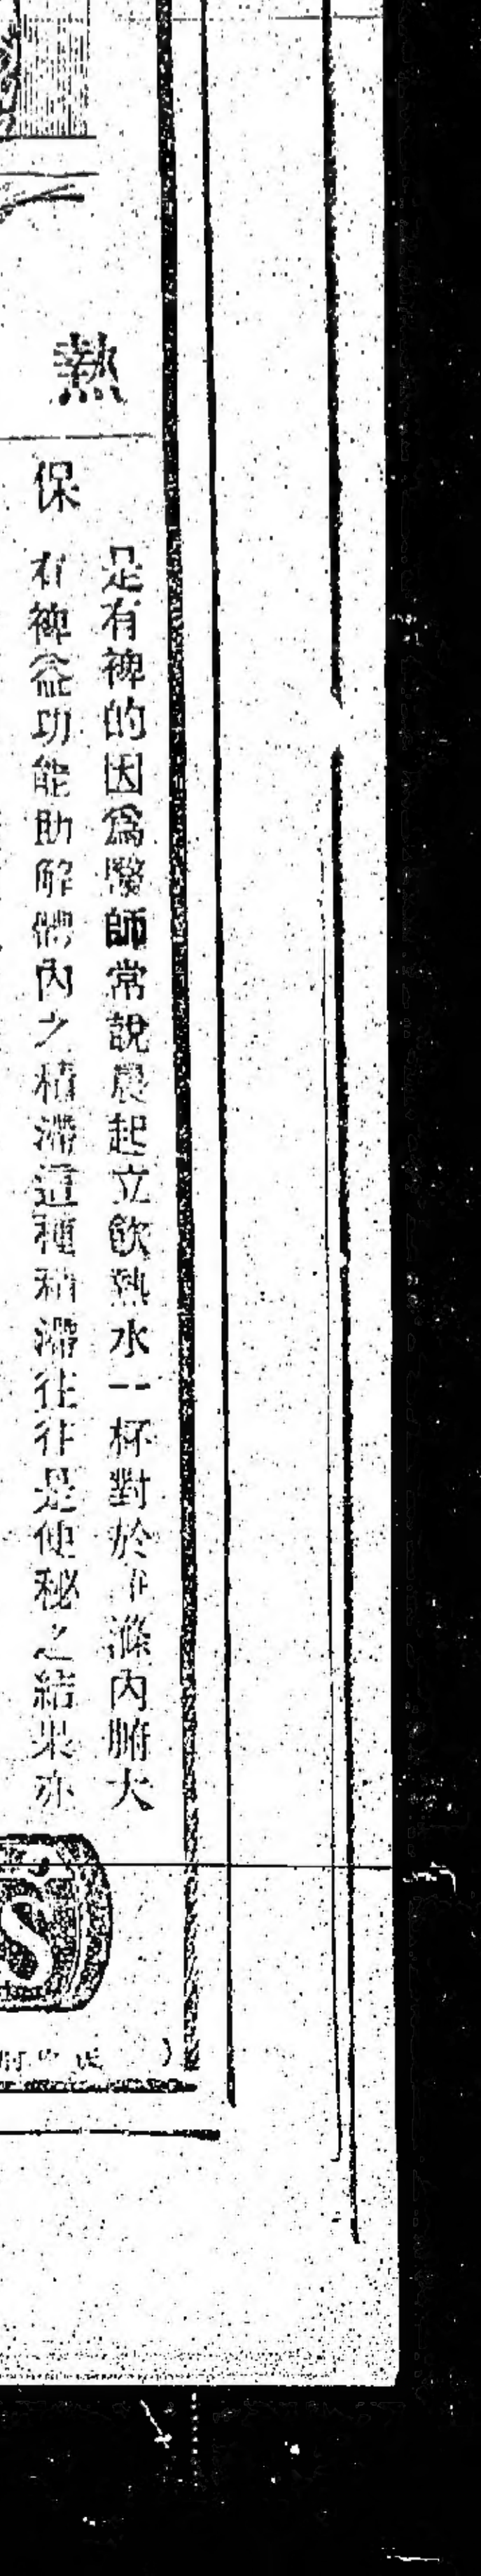 熱
是有裨的因爲醫師常說晨起立飲熱水一杯對於 滌內腑大
保
有裨益功能助解體內之積滯這種積滯往往是使秘之結果亦
S